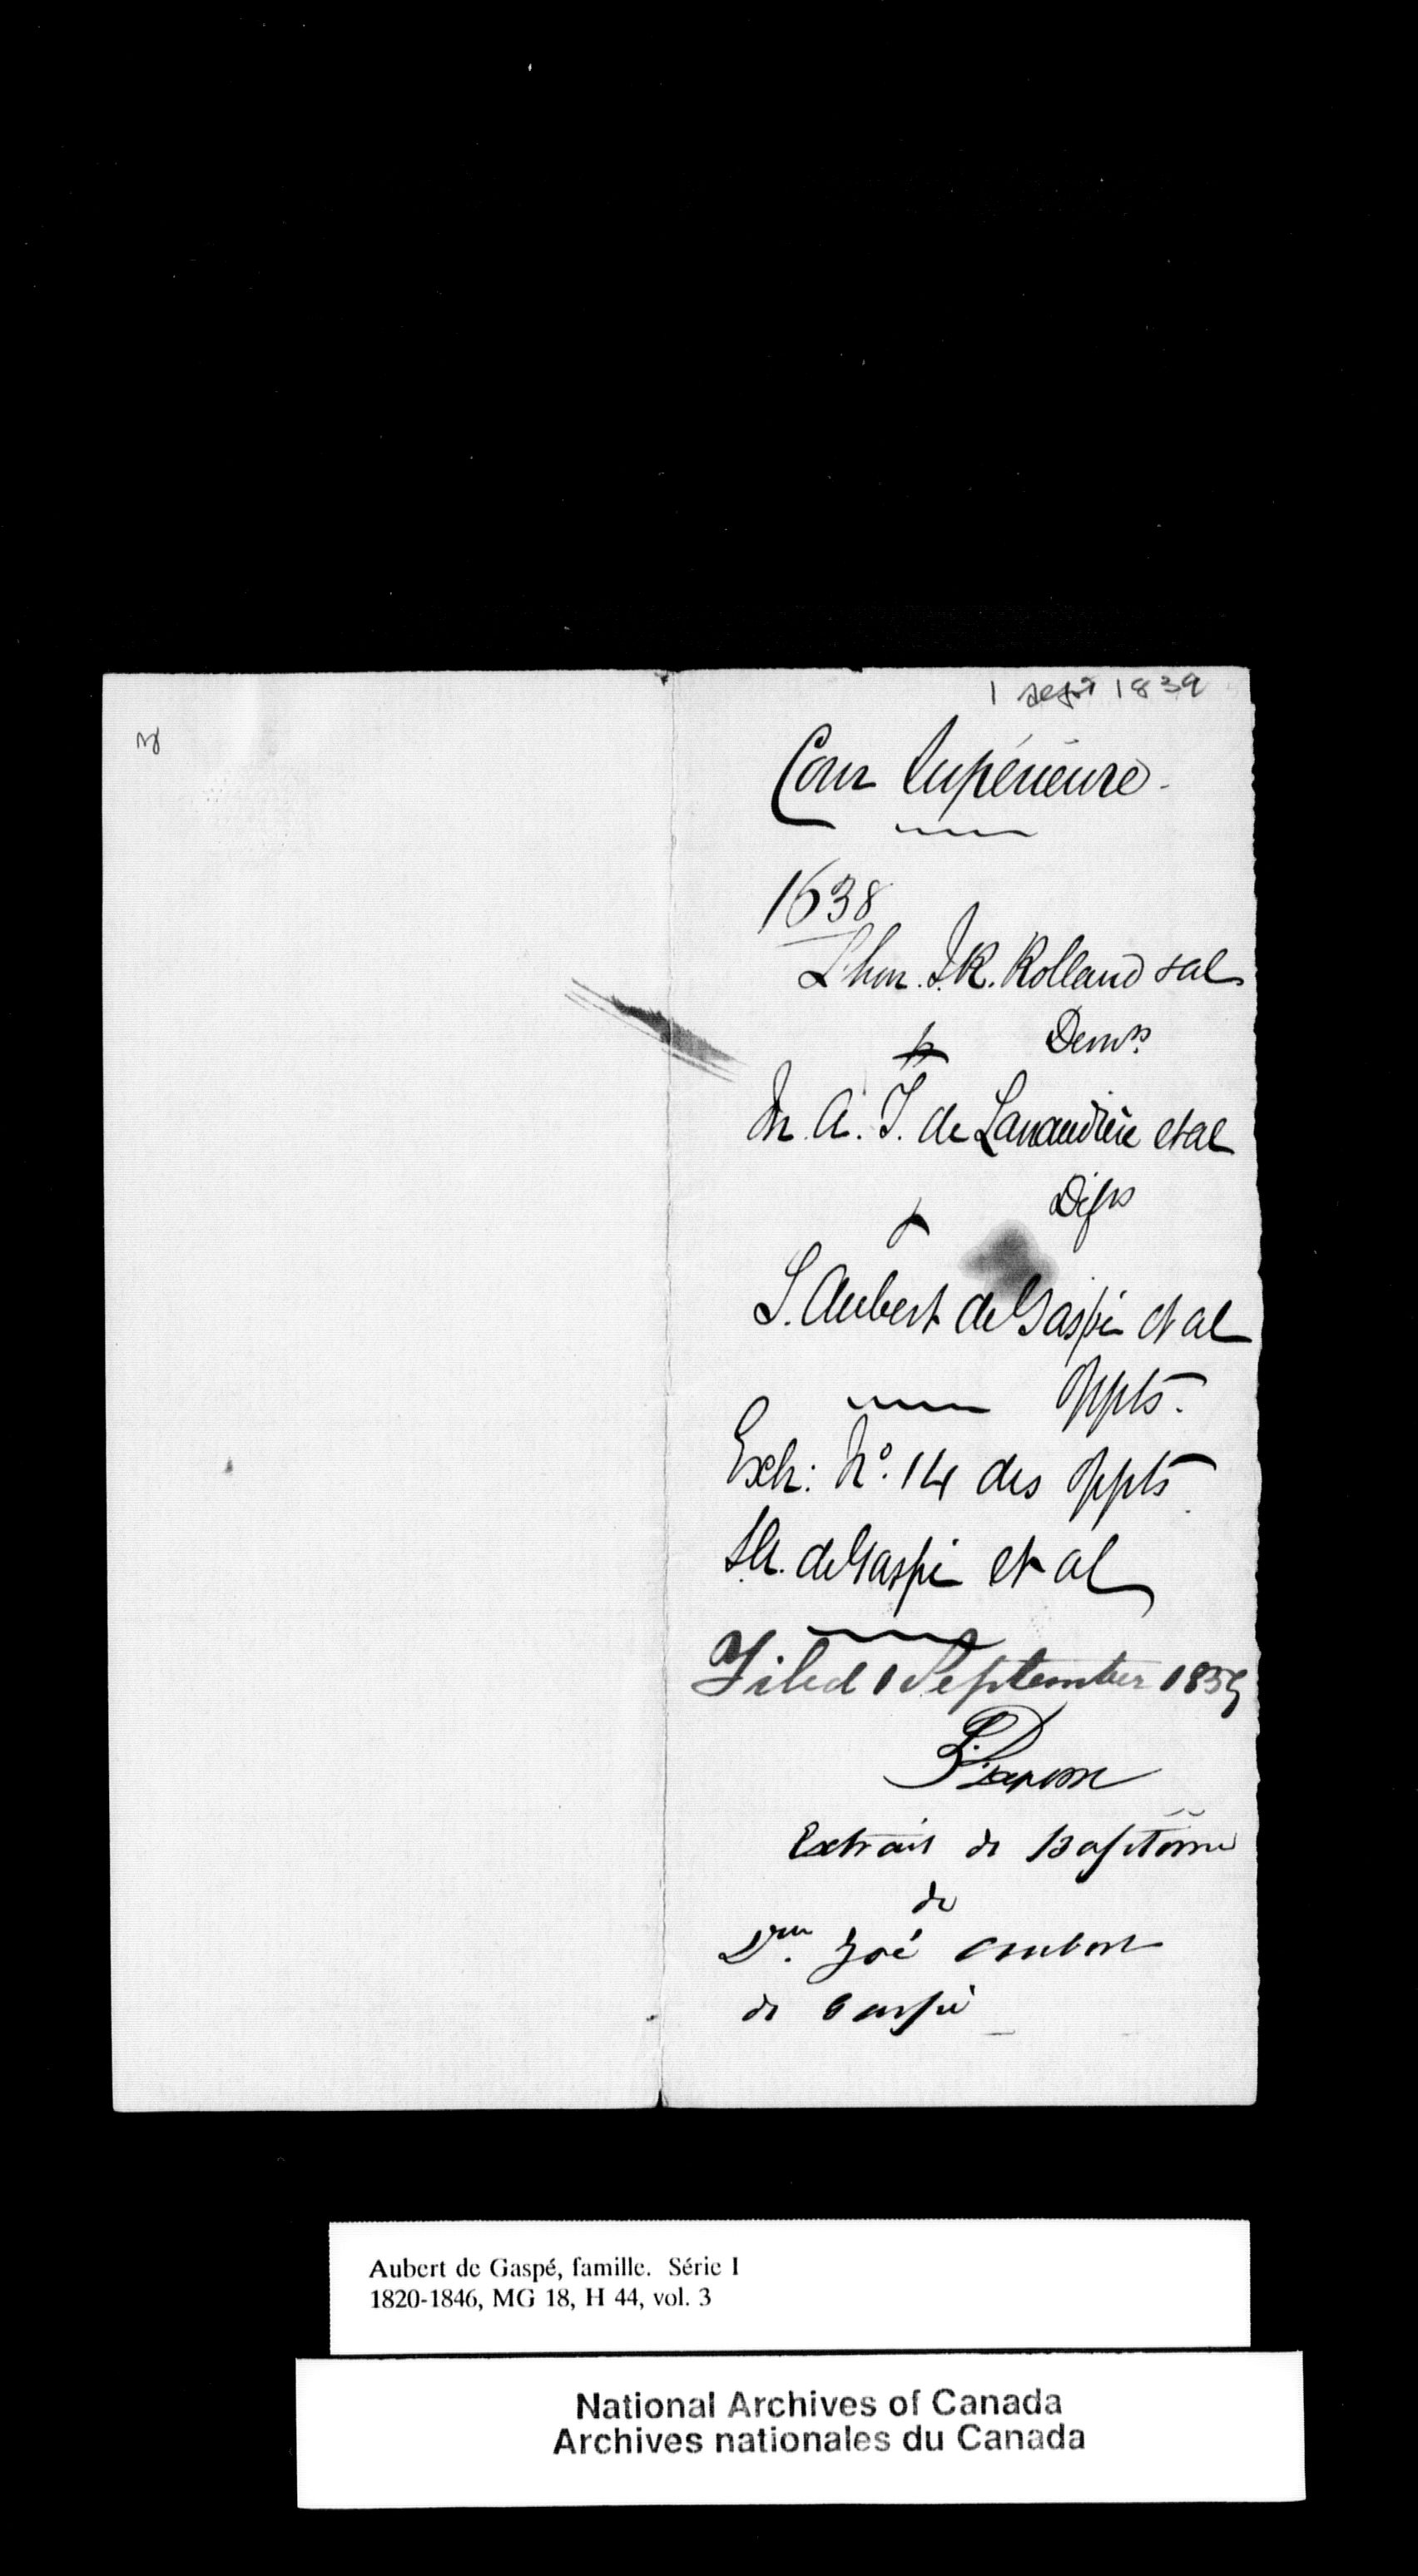 1 sept 1839
Cour Supérieure
1638
L'hon. J. R. Rolland & al
Demrs
M. A. T. de Lanaudière et al
Defrs
&
S. Aubert de Gaspé et al
Oppts.
Exh: No. 14 des Oppts
S. A. de Gaspé et al
Filed 1 September 1859
Extrait de Baptême
de
Dme. Zoé Aubert
de Gaspé
Aubert de Gaspé, famille. Série I
1820-1846, MG 18, H 44, vol. 3
National Archives of Canada
Archives nationales du Canada